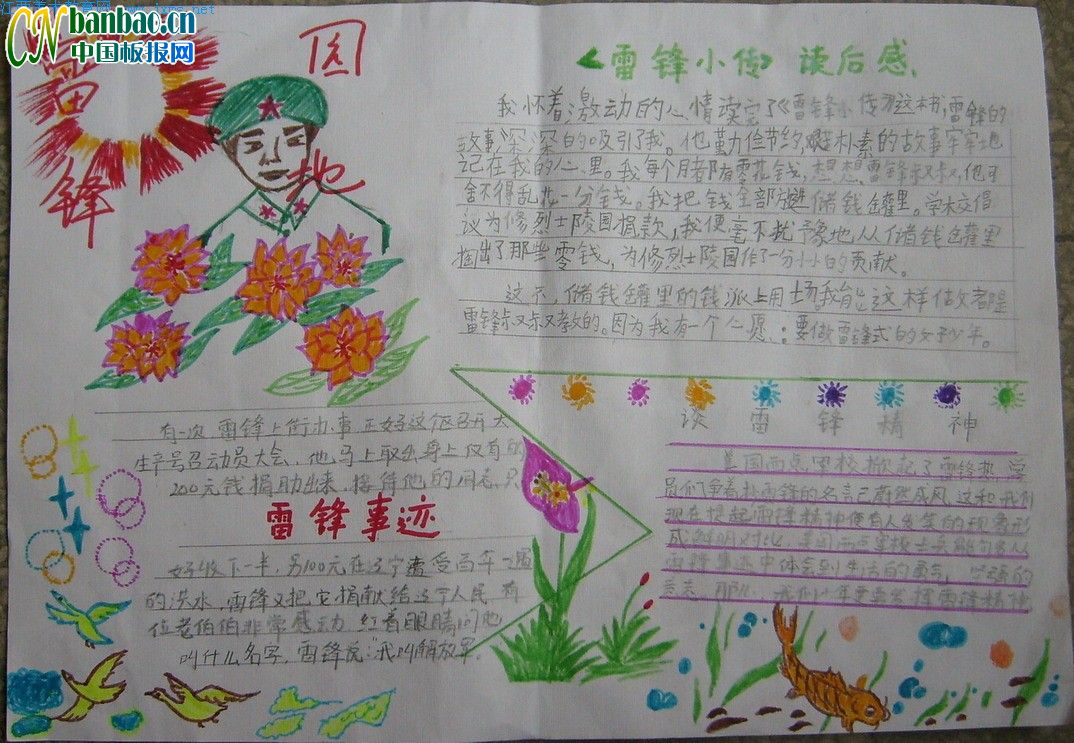 banbao.cn
中国板报网
雷
锋
园
地
《雷锋小传》读后感
我怀着激动的心情读完了《雷锋小传》这本书,雷锋的
故事深深的吸引了我。他勤俭节约,艰苦朴素的故事牢牢地
记在我的心里。我每个月都有零花钱,想想雷锋叔叔,他可
舍不得乱花一分钱。我把钱全部放进储钱罐里。学校倡
议为修烈士陵园捐款,我便毫不犹豫地从储钱罐里
掏出了那些零钱,为修烈士陵园作了一分小小的贡献。
这不,储钱罐里的钱派上用场我能这样做都是
雷锋叔叔教的。因为我有一个心愿:要做雷锋式的好少年。
有一次 雷锋上街办事 正好这个区召开大
生产号召动员大会,他马上取出身上仅有的
200元钱捐助出来,接待他的同志 只
雷锋事迹
好收下一半,另100元在辽宁遭受百年一遇
的洪水,雷锋又把它捐献给辽宁人民 有
位老伯伯非常感动 红着眼睛问他
叫什么名字,雷锋说:"我叫解放军。
谈雷锋精神
美国西点军校掀起了雷锋热,学
员们争着抄雷锋的名言已蔚然成风 这和我们
现在提起雷锋精神便有人发笑的现象形
成鲜明对比,美国西点军校士兵能
雷锋事迹中体会到生活的勇气,坚强的
意志 那么 我们